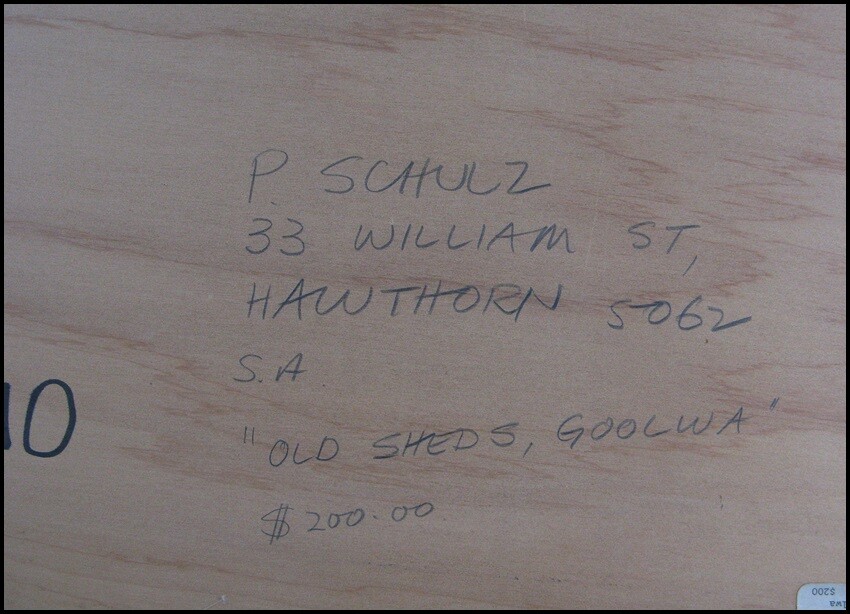 P. SCHULZ
33 WILLIAM ST,
HAWTHORN 5062
S.A.
10
"OLD SHEDS, GOOLWA"
$200.00
$200